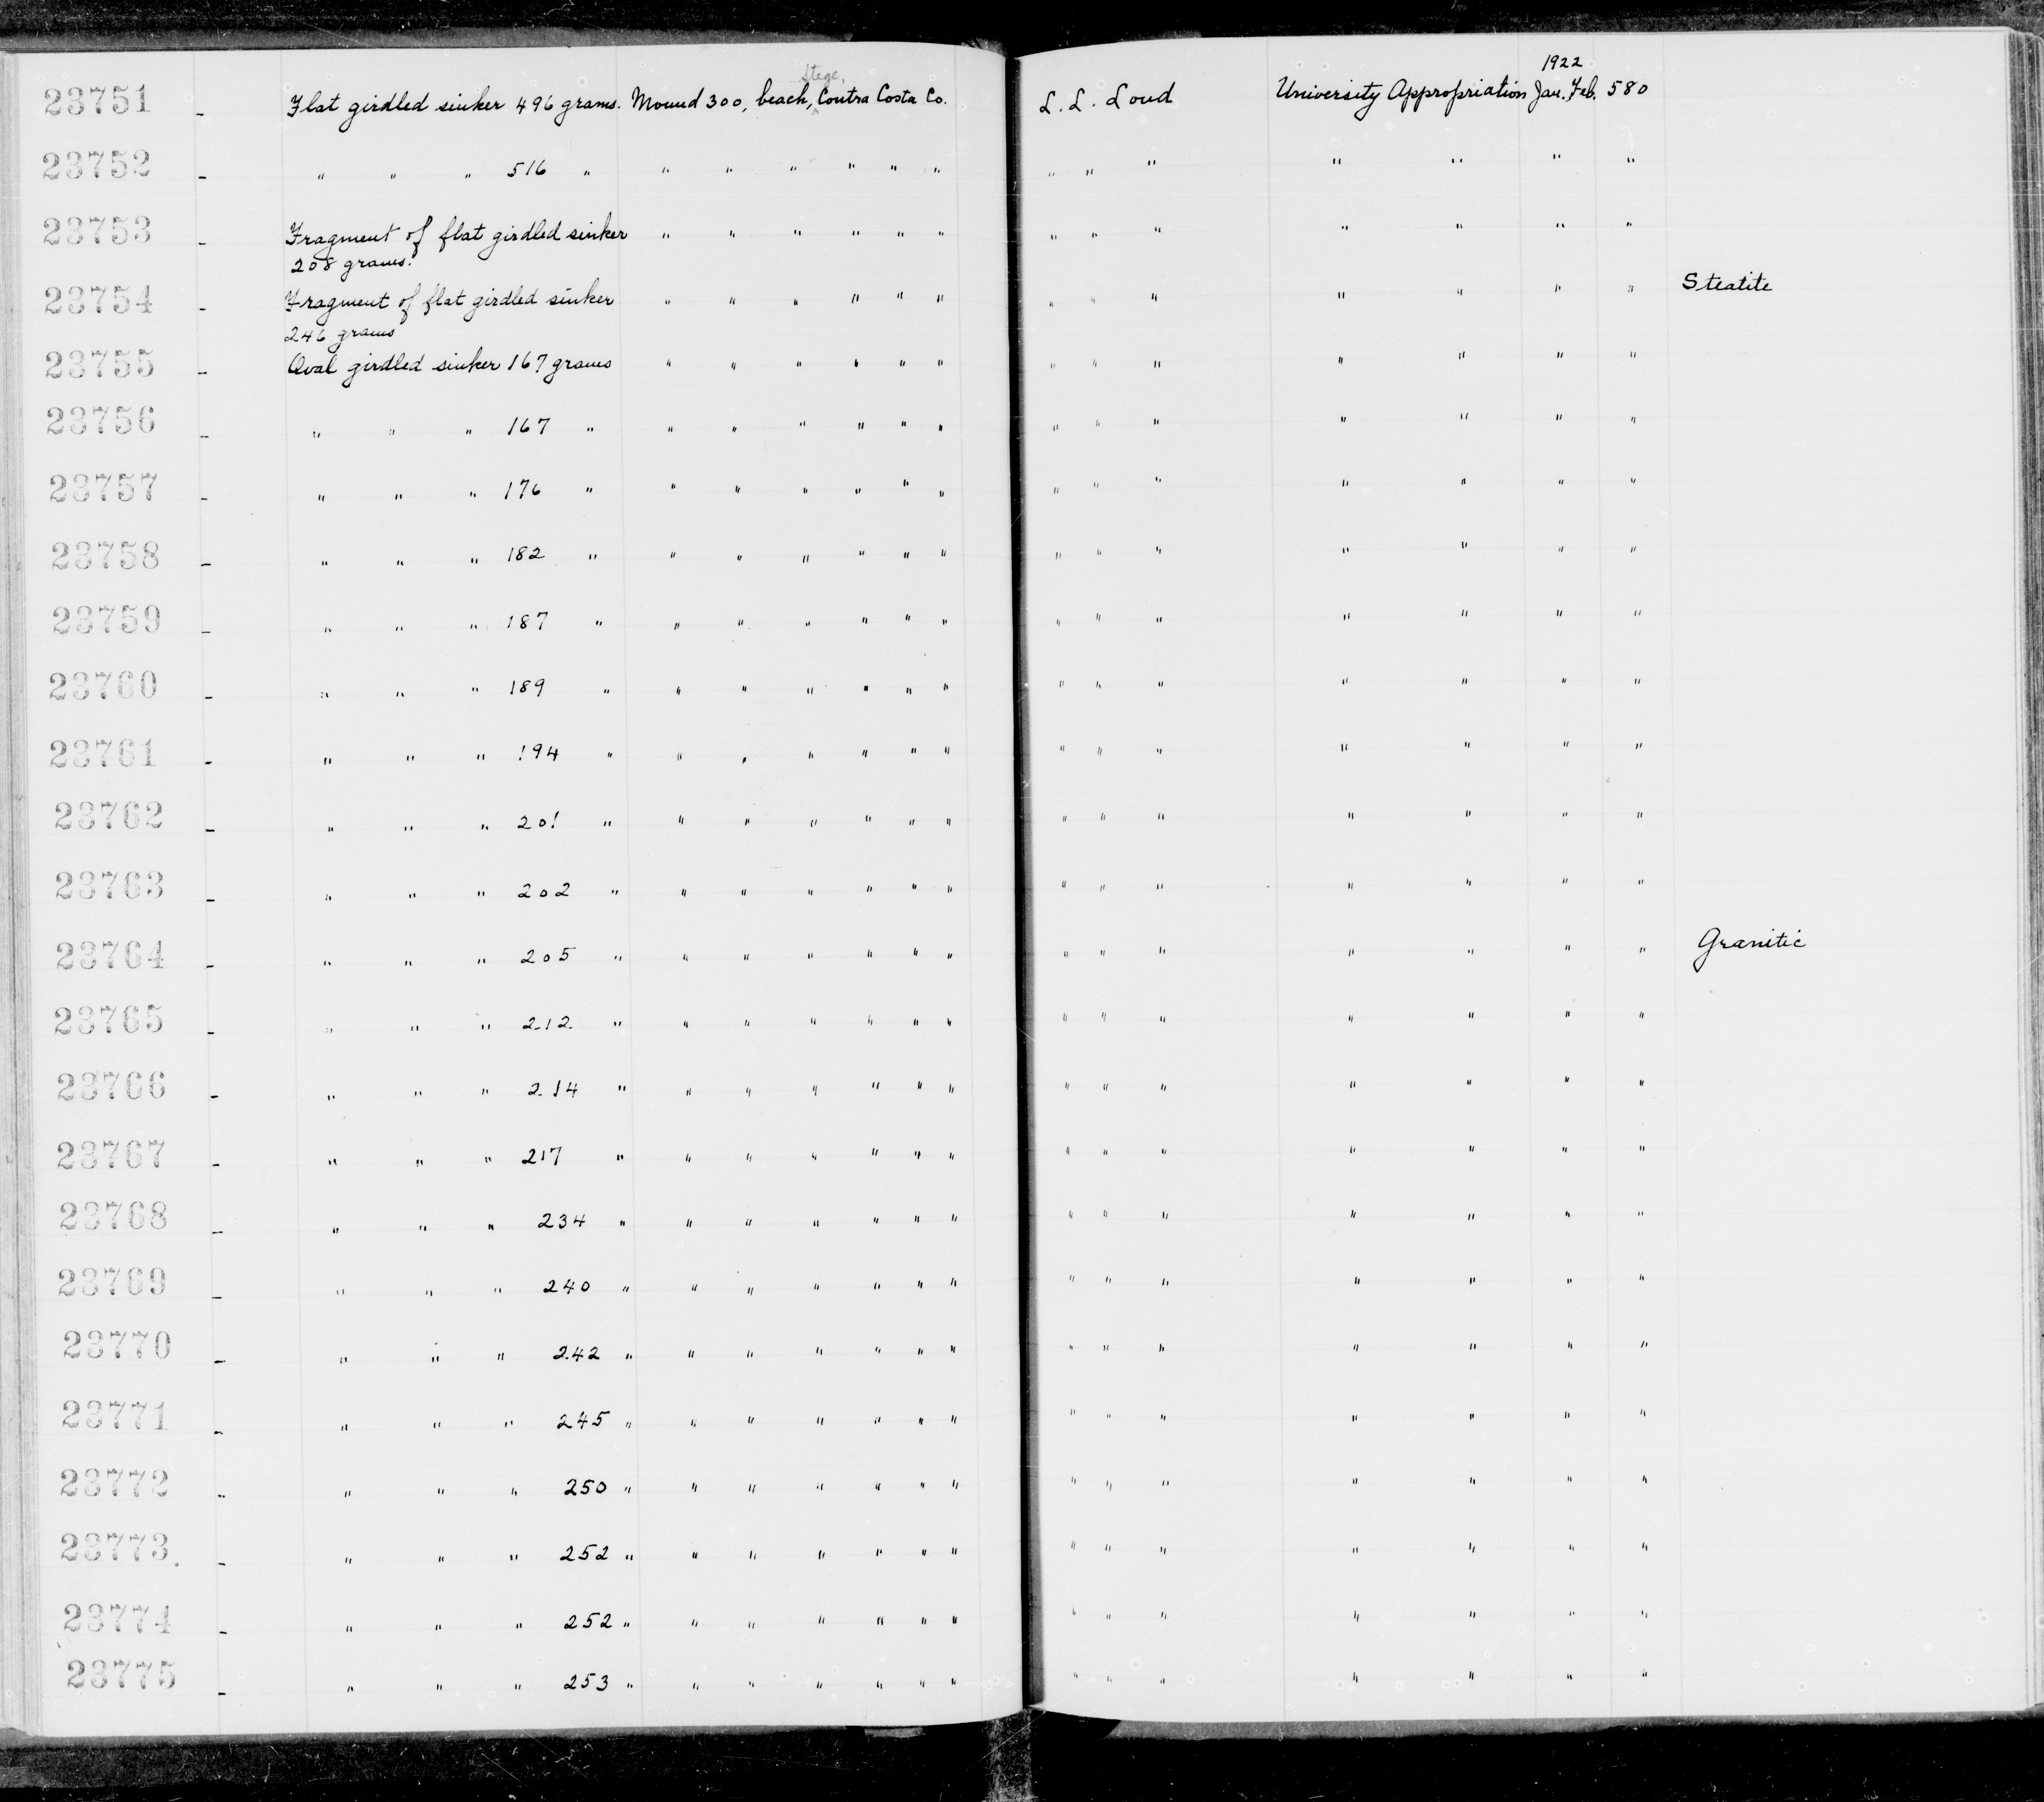 1922
Stege,
23751 - Flat girdled sinker 496 grams. Mound 300, beach, Contra Costa Co. L. L. Loud University Appropriation Jan. Feb. 580
23752 - " " " 516 " " " " " " " " " " " " " "
23753 - Fragment of flat girdled sinker " " " " " " " " " " " " "
208 grams.
23754 - Fragment of flat girdled sinker " " " " " " " " " " " " " Steatite
246 grams
23755 - Oval girdled sinker 167 grams " " " " " " " " " " " " "
23756 - " " " 167 " " " " " " " " " " " " " "
23757 - " " " 176 " " " " " " " " " " " " " "
23758 - " " " 182 " " " " " " " " " " " " " "
23759 - " " " 187 " " " " " " " " " " " " " "
23760 - " " " 189 " " " " " " " " " " " " " "
23761 - " " " 194 " " " " " " " " " " " " " "
23762 - " " " 201 " " " " " " " " " " " " " "
23763 - " " " 202 " " " " " " " " " " " " " "
23764 - " " " 205 " " " " " " " " " " " " " " Granitic
23765 - " " " 212 " " " " " " " " " " " " " "
23766 - " " " 214 " " " " " " " " " " " " " "
23767 - " " " 217 " " " " " " " " " " " " " "
23768 - " " " 234 " " " " " " " " " " " " " "
23769 - " " " 240 " " " " " " " " " " " " " "
23770 - " " " 242 " " " " " " " " " " " " " "
23771 - " " " 245 " " " " " " " " " " " " " "
23772 - " " " 250 " " " " " " " " " " " " " "
23773. - " " " 252 " " " " " " " " " " " " " "
23774 - " " " 252 " " " " " " " " " " " " " "
23775 - " " " 253 " " " " " " " " " " " " " "